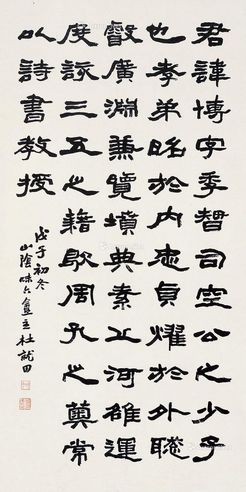 君諱博字季智司空公之少子
也孝弟昭於内忠貞耀於外聰
叡廣淵兼覽墳典素丘河雒運
度詠三五之籍歆周孔之奠常
以詩書教授
戊子初冬
山陰味六盦主杜就田